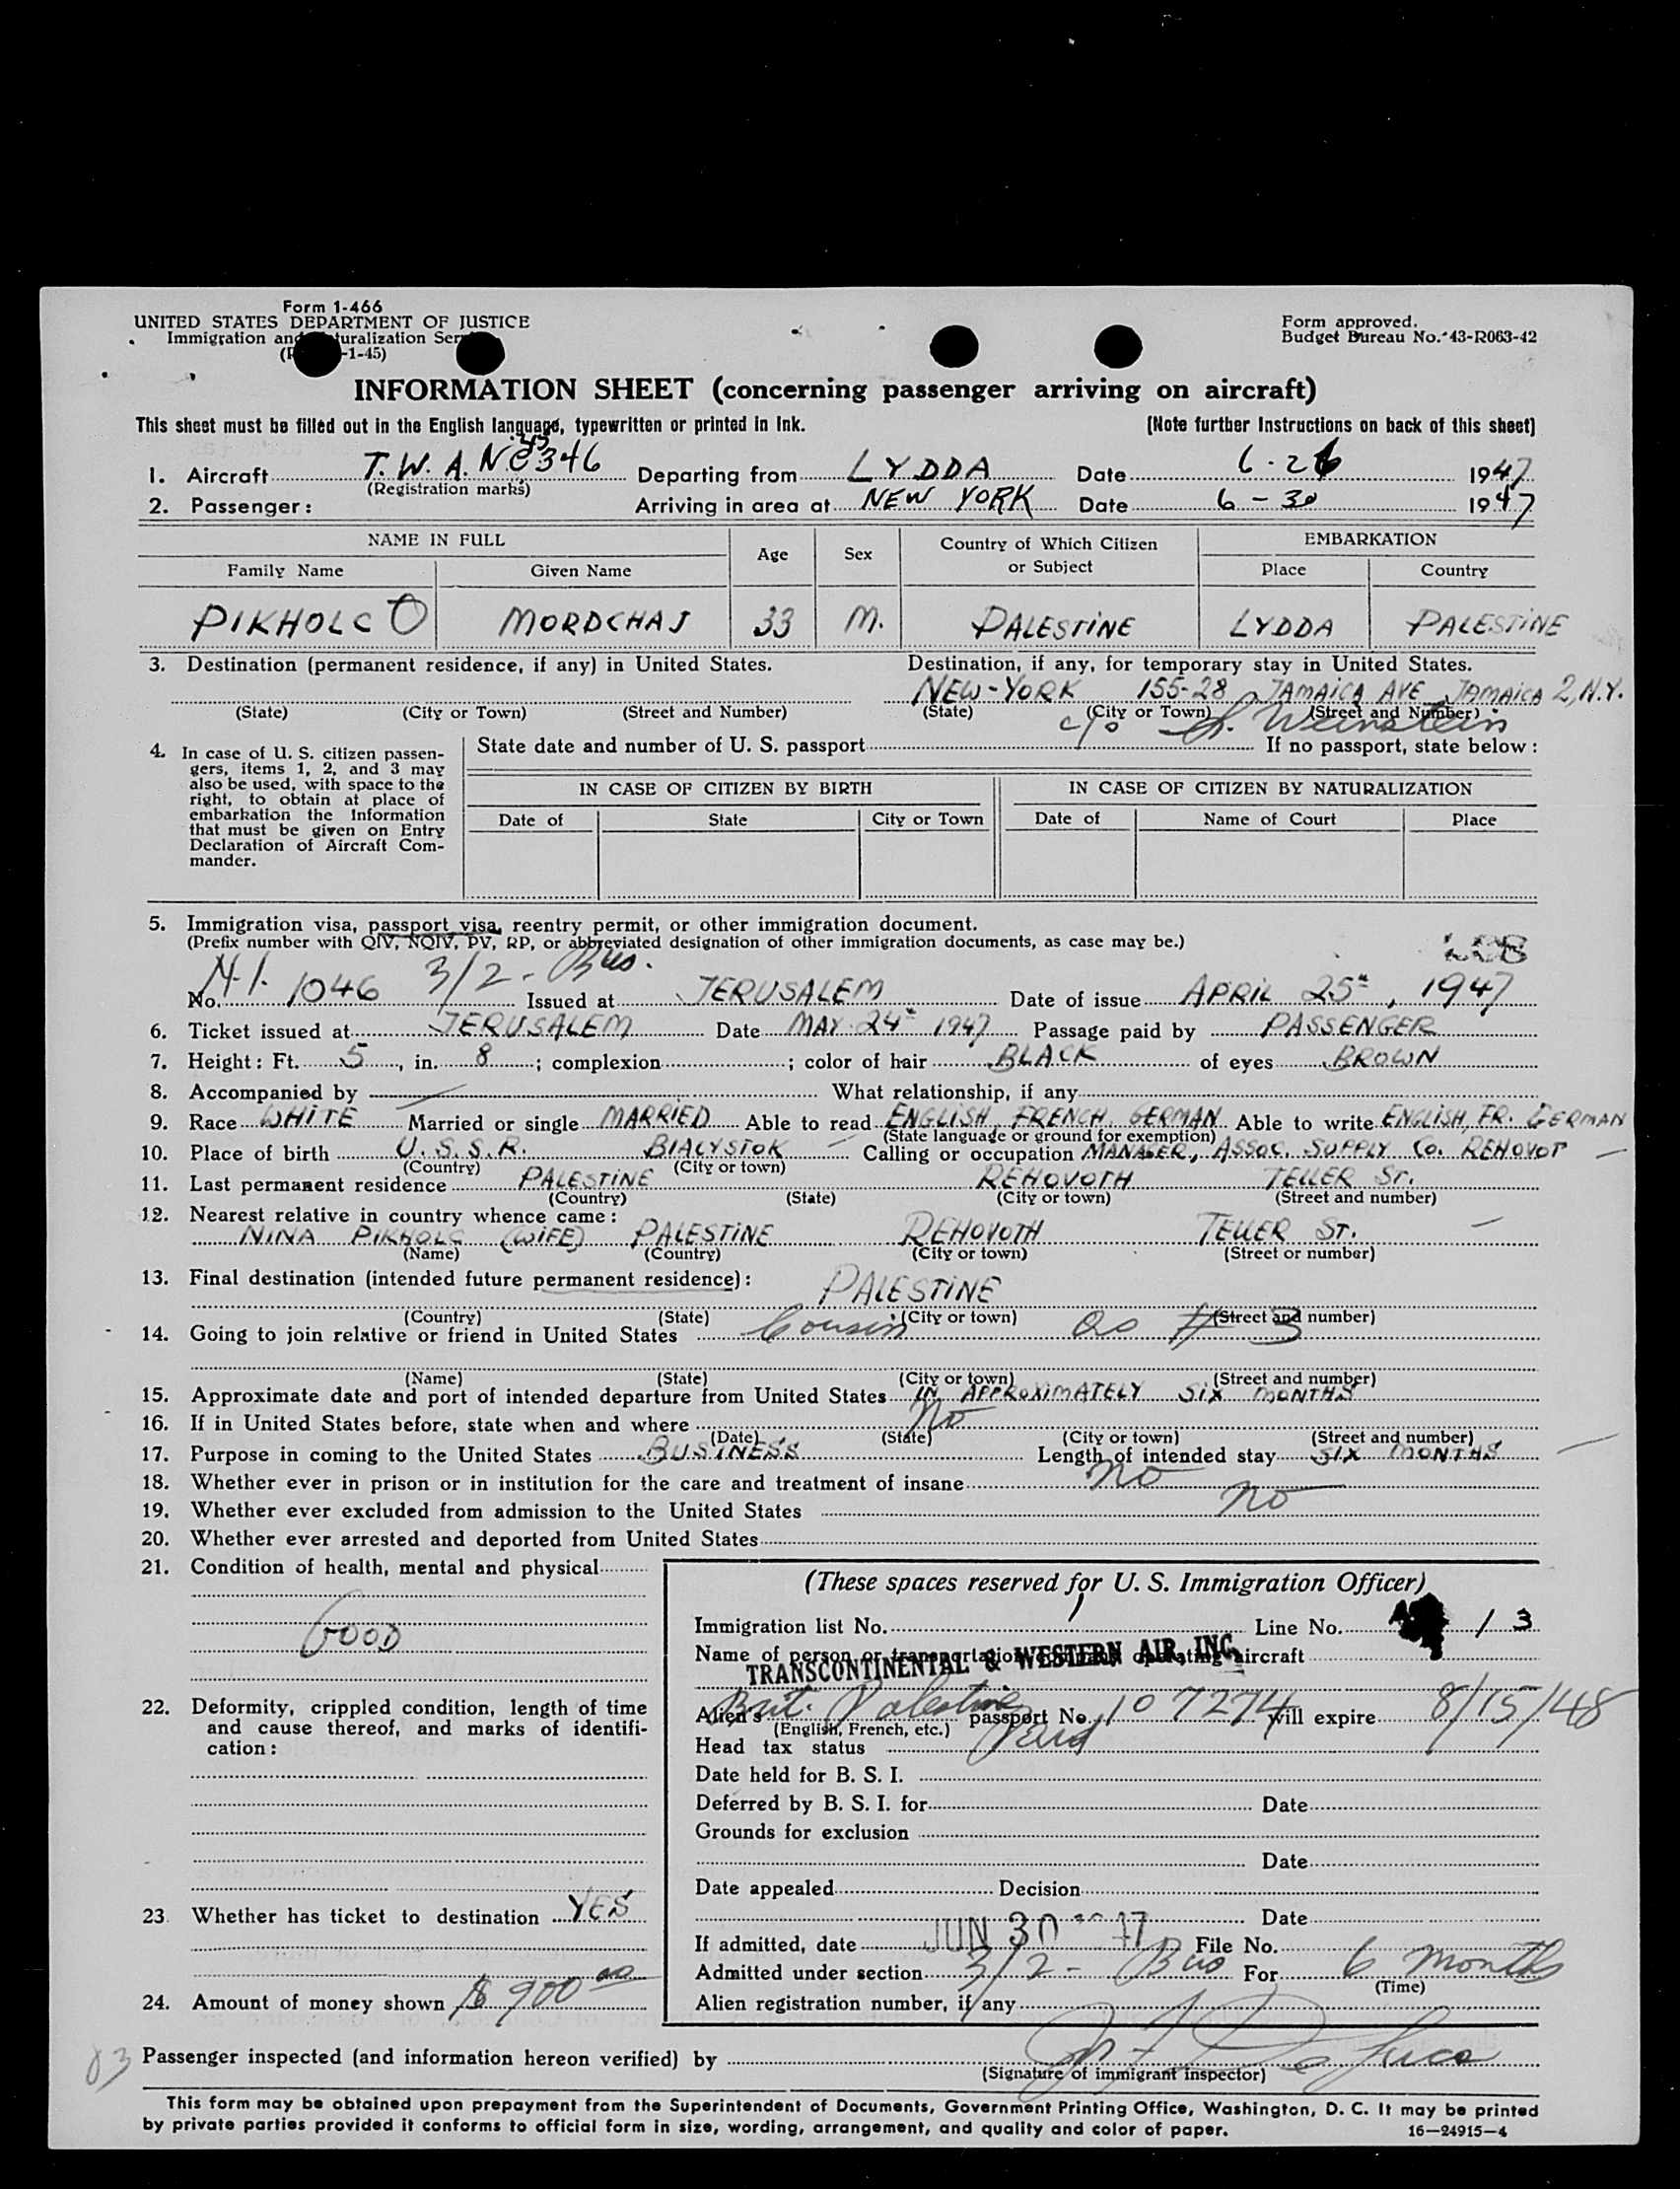 Form 1-466
UNITED STATES DEPARTMENT OF JUSTICE
Immigration and Naturalization Ser
-1-45)
Form approved.
Budget Bureau No. 43-R063-42
INFORMATION SHEET (concerning passenger arriving on aircraft)
This sheet must be filled out in the English language, typewritten or printed in ink. [Note further instructions on back of this sheet]
1. Aircraft T. W. A. NC 346 Departing from LYDDA Date 6-26 1947
(Registration marks)
2. Passenger: Arriving in area at NEW YORK Date 6-30 1947
NAME IN FULL Age Sex Country of Which Citizen or Subject EMBARKATION
Family Name Given Name Place Country
PIKHOLC MORDCHAJ 33 M. PALESTINE LYDDA PALESTINE
3. Destination (permanent residence, if any) in United States. Destination, if any, for temporary stay in United States.
NEW-YORK 155-28 JAMAICA AVE JAMAICA 2, N.Y.
(State) (City or Town) (Street and Number) (State) (City or Town) (Street and Number)
c/o Weinstein
4. In case of U. S. citizen passen-
gers, items 1, 2, and 3 may
also be used, with space to the
right, to obtain at place of
embarkation the information
that must be given on Entry
Declaration of Aircraft Com-
mander.
State date and number of U. S. passport If no passport, state below:
IN CASE OF CITIZEN BY BIRTH IN CASE OF CITIZEN BY NATURALIZATION
Date of State City or Town Date of Name of Court Place
5. Immigration visa, passport visa, reentry permit, or other immigration document.
(Prefix number with QIV, NQIV, PV, RP, or abbreviated designation of other immigration documents, as case may be.)
No. 1046 3/2 - Bus. Issued at JERUSALEM Date of issue APRIL 25th, 1947
6. Ticket issued at JERUSALEM Date MAY 24th 1947 Passage paid by PASSENGER
7. Height: Ft. 5, in. 8; complexion ; color of hair BLACK of eyes BROWN
8. Accompanied by — What relationship, if any
9. Race WHITE Married or single MARRIED Able to read ENGLISH, FRENCH, GERMAN Able to write ENGLISH, FR. GERMAN
(State language or ground for exemption)
10. Place of birth U.S.S.R. BIALYSTOK Calling or occupation MANAGER, ASSOC. SUPPLY Co. REHOVOT
(Country) (City or town)
11. Last permanent residence PALESTINE REHOVOTH TELLER ST.
(Country) (State) (City or town) (Street and number)
12. Nearest relative in country whence came:
NINA PIKHOLC (WIFE) PALESTINE REHOVOTH TELLER ST.
(Name) (Country) (City or town) (Street or number)
13. Final destination (intended future permanent residence): PALESTINE
(Country) (State) (City or town) (Street and number)
14. Going to join relative or friend in United States Cousin as # 3
(Name) (State) (City or town) (Street and number)
15. Approximate date and port of intended departure from United States IN APPROXIMATELY SIX MONTHS
16. If in United States before, state when and where No
(Date) (State) (City or town) (Street and number)
17. Purpose in coming to the United States BUSINESS Length of intended stay SIX MONTHS
18. Whether ever in prison or in institution for the care and treatment of insane no
19. Whether ever excluded from admission to the United States no
20. Whether ever arrested and deported from United States
21. Condition of health, mental and physical
GOOD
22. Deformity, crippled condition, length of time
and cause thereof, and marks of identifi-
cation:
23. Whether has ticket to destination YES
24. Amount of money shown $ 900 00
(These spaces reserved for U. S. Immigration Officer)
Immigration list No. 1 Line No. 13
Name of person or transportation company operating aircraft
TRANSCONTINENTAL & WESTERN AIR, INC.
Alien's Brit. Palestine passport No. 107274 will expire 8/15/48
(English, French, etc.)
Head tax status Paid
Date held for B. S. I.
Deferred by B. S. I. for Date
Grounds for exclusion
Date
Date appealed Decision
Date
If admitted, date JUN 30 1947 File No.
Admitted under section 3/2 - Bus For 6 Months
(Time)
Alien registration number, if any
83
Passenger inspected (and information hereon verified) by
(Signature of immigrant inspector)
This form may be obtained upon prepayment from the Superintendent of Documents, Government Printing Office, Washington, D. C. It may be printed
by private parties provided it conforms to official form in size, wording, arrangement, and quality and color of paper. 16—24915-4